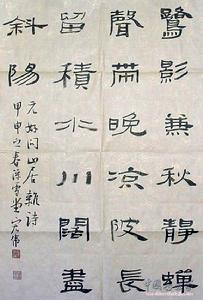 鷺影兼秋靜蟬
聲帶晚涼陂長
留積水川闊盡
斜陽
元好問山居雜詩
甲申之春